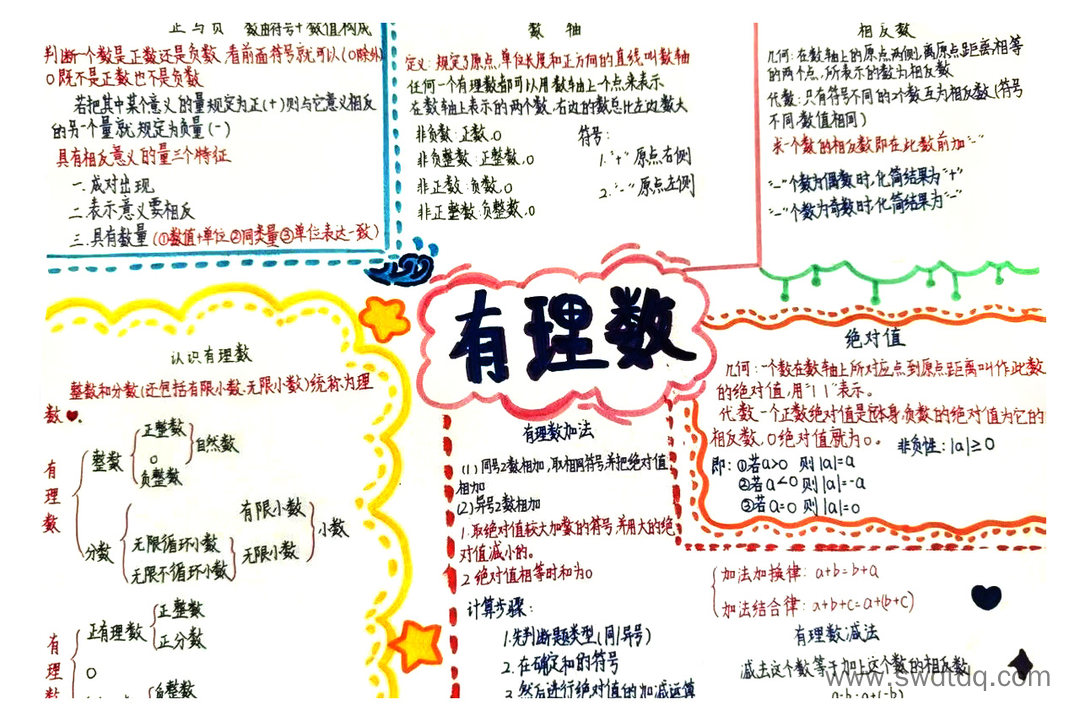 正与负 数由符号+数值构成
判断一个数是正数还是负数,看前面符号就可以(0除外)
0既不是正数也不是负数
若把其中某个意义的量规定为正(+)则与它意义相反
的另一个量就规定为负量(-)
具有相反意义的量三个特征
一.成对出现
二.表示意义要相反
三.具有数量(①数值+单位②同类量③单位表达一致)
数轴
定义:规定了原点,单位长度和正方向的直线叫数轴
任何一个有理数都可以用数轴上一个点来表示
在数轴上表示的两个数,右边的数总比左边数大
非负数:正数,0
非负整数:正整数,0
非正数:负数,0
非正整数:负整数,0
符号:
1."+"原点右侧
2."-"原点左侧
相反数
几何:在数轴上的原点两侧,离原点距离相等
的两个点,所表示的数为相反数
代数:只有符号不同的2个数互为相反数(符号
不同,数值相同)
求一个数的相反数即在此数前加"-"
"-"个数为偶数时,化简结果为"+"
"-"个数为奇数时,化简结果为"-"
有理数
认识有理数
整数和分数(还包括有限小数.无限小数)统称为理
数
有理数
整数
正整数
0
负整数
自然数
分数
有限小数
无限循环小数
无限不循环小数
无限小数
小数
有理数
正有理数
正整数
正分数
0
负整数
有理数加法
(1)同号2数相加,取相同符号并把绝对值
相加
(2)异号2数相加
1.取绝对值较大加数的符号并用大的绝
对值减小的。
2.绝对值相等时和为0
计算步骤:
1.先判断题类型(同/异号)
2.在确定和的符号
3.然后进行绝对值的加减运算
绝对值
几何:一个数在数轴上所对应点到原点距离叫作此数
的绝对值,用"| |"表示。
代数:一个正数绝对值是它本身,负数的绝对值为它的
相反数,0绝对值就为0。 非负性:|a|≥0
即:①若a>0 则|a|=a
②若a<0 则|a|=-a
③若a=0 则|a|=0
加法加换律:a+b=b+a
加法结合律:a+b+c=a+(b+c)
有理数减法
减去这个数等于加上这个数的相反数
a-b=a+(-b)
www.swdtdq.com